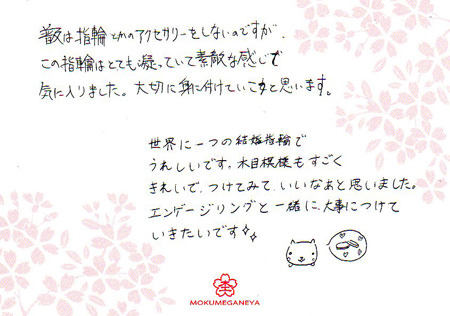 普段は指輪とかのアクセサリーをしないのですが、
この指輪はとても凝っていて素敵な感じで
気に入りました。大切に身に付けていこうと思います。
世界に一つの結婚指輪で
うれしいです。木目模様もすごく
きれいで、つけてみて、いいなあと思いました。
エンゲージリングと一緒に、大事につけて
いきたいです
MOKUMEGANEYA